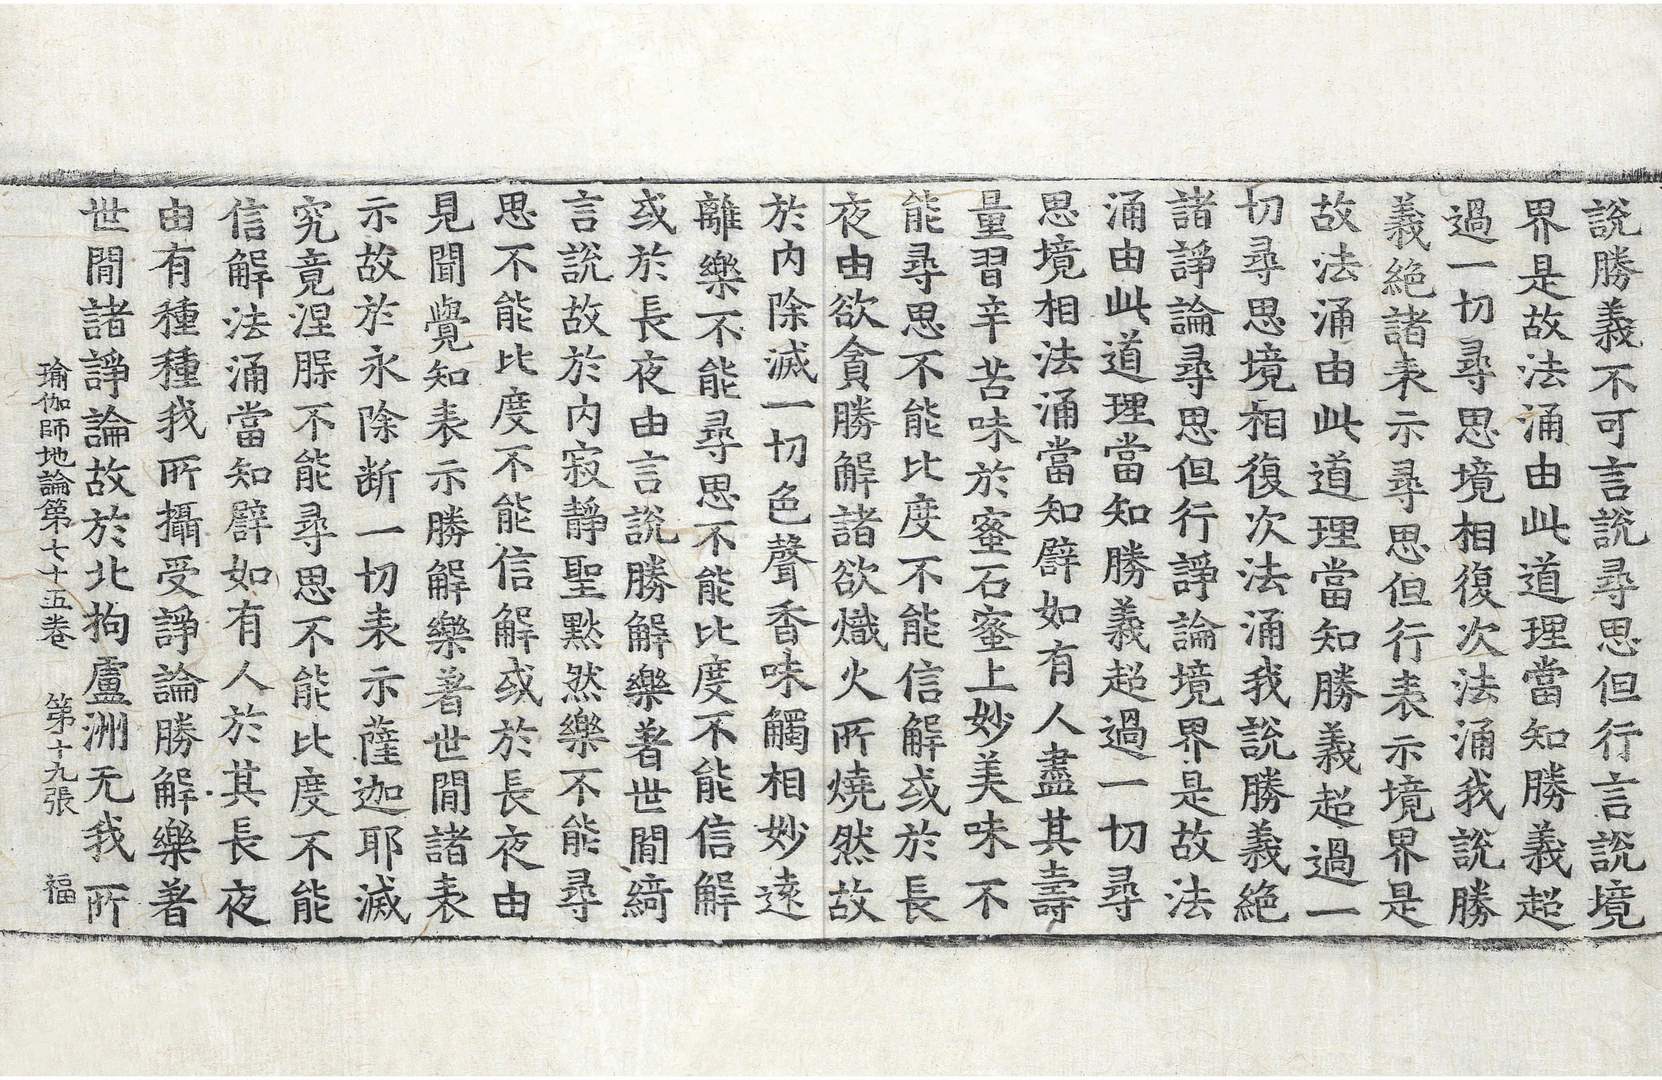 說勝義不可言說尋思但行言說境
界是故法涌由此道理當知勝義超
過一切尋思境相復次法涌我說勝
義絶諸表示尋思但行表示境界是
故法涌由此道理當知勝義超過一
切尋思境相復次法涌我說勝義絶
諸諍論尋思但行諍論境界是故法
涌由此道理當知勝義超過一切尋
思境相法涌當知譬如有人盡其壽
量習辛苦味於蜜石蜜上妙美味不
能尋思不能比度不能信解或於長
夜由欲貪勝解諸欲熾火所燒然故
於內除滅一切色聲香味觸相妙遠
離樂不能尋思不能比度不能信解
或於長夜由言說勝解樂著世間綺
言說故於內寂靜聖默然樂不能尋
思不能比度不能信解或於長夜由
見聞覺知表示勝解樂著世間諸表
示故於永除斷一切表示薩迦耶滅
究竟涅槃不能尋思不能比度不能
信解法涌當知譬如有人於其長夜
由有種種我所攝受諍論勝解樂著
世間諸諍論故於北拘盧洲无我所
瑜伽師地論第七十五卷 第十九張 福